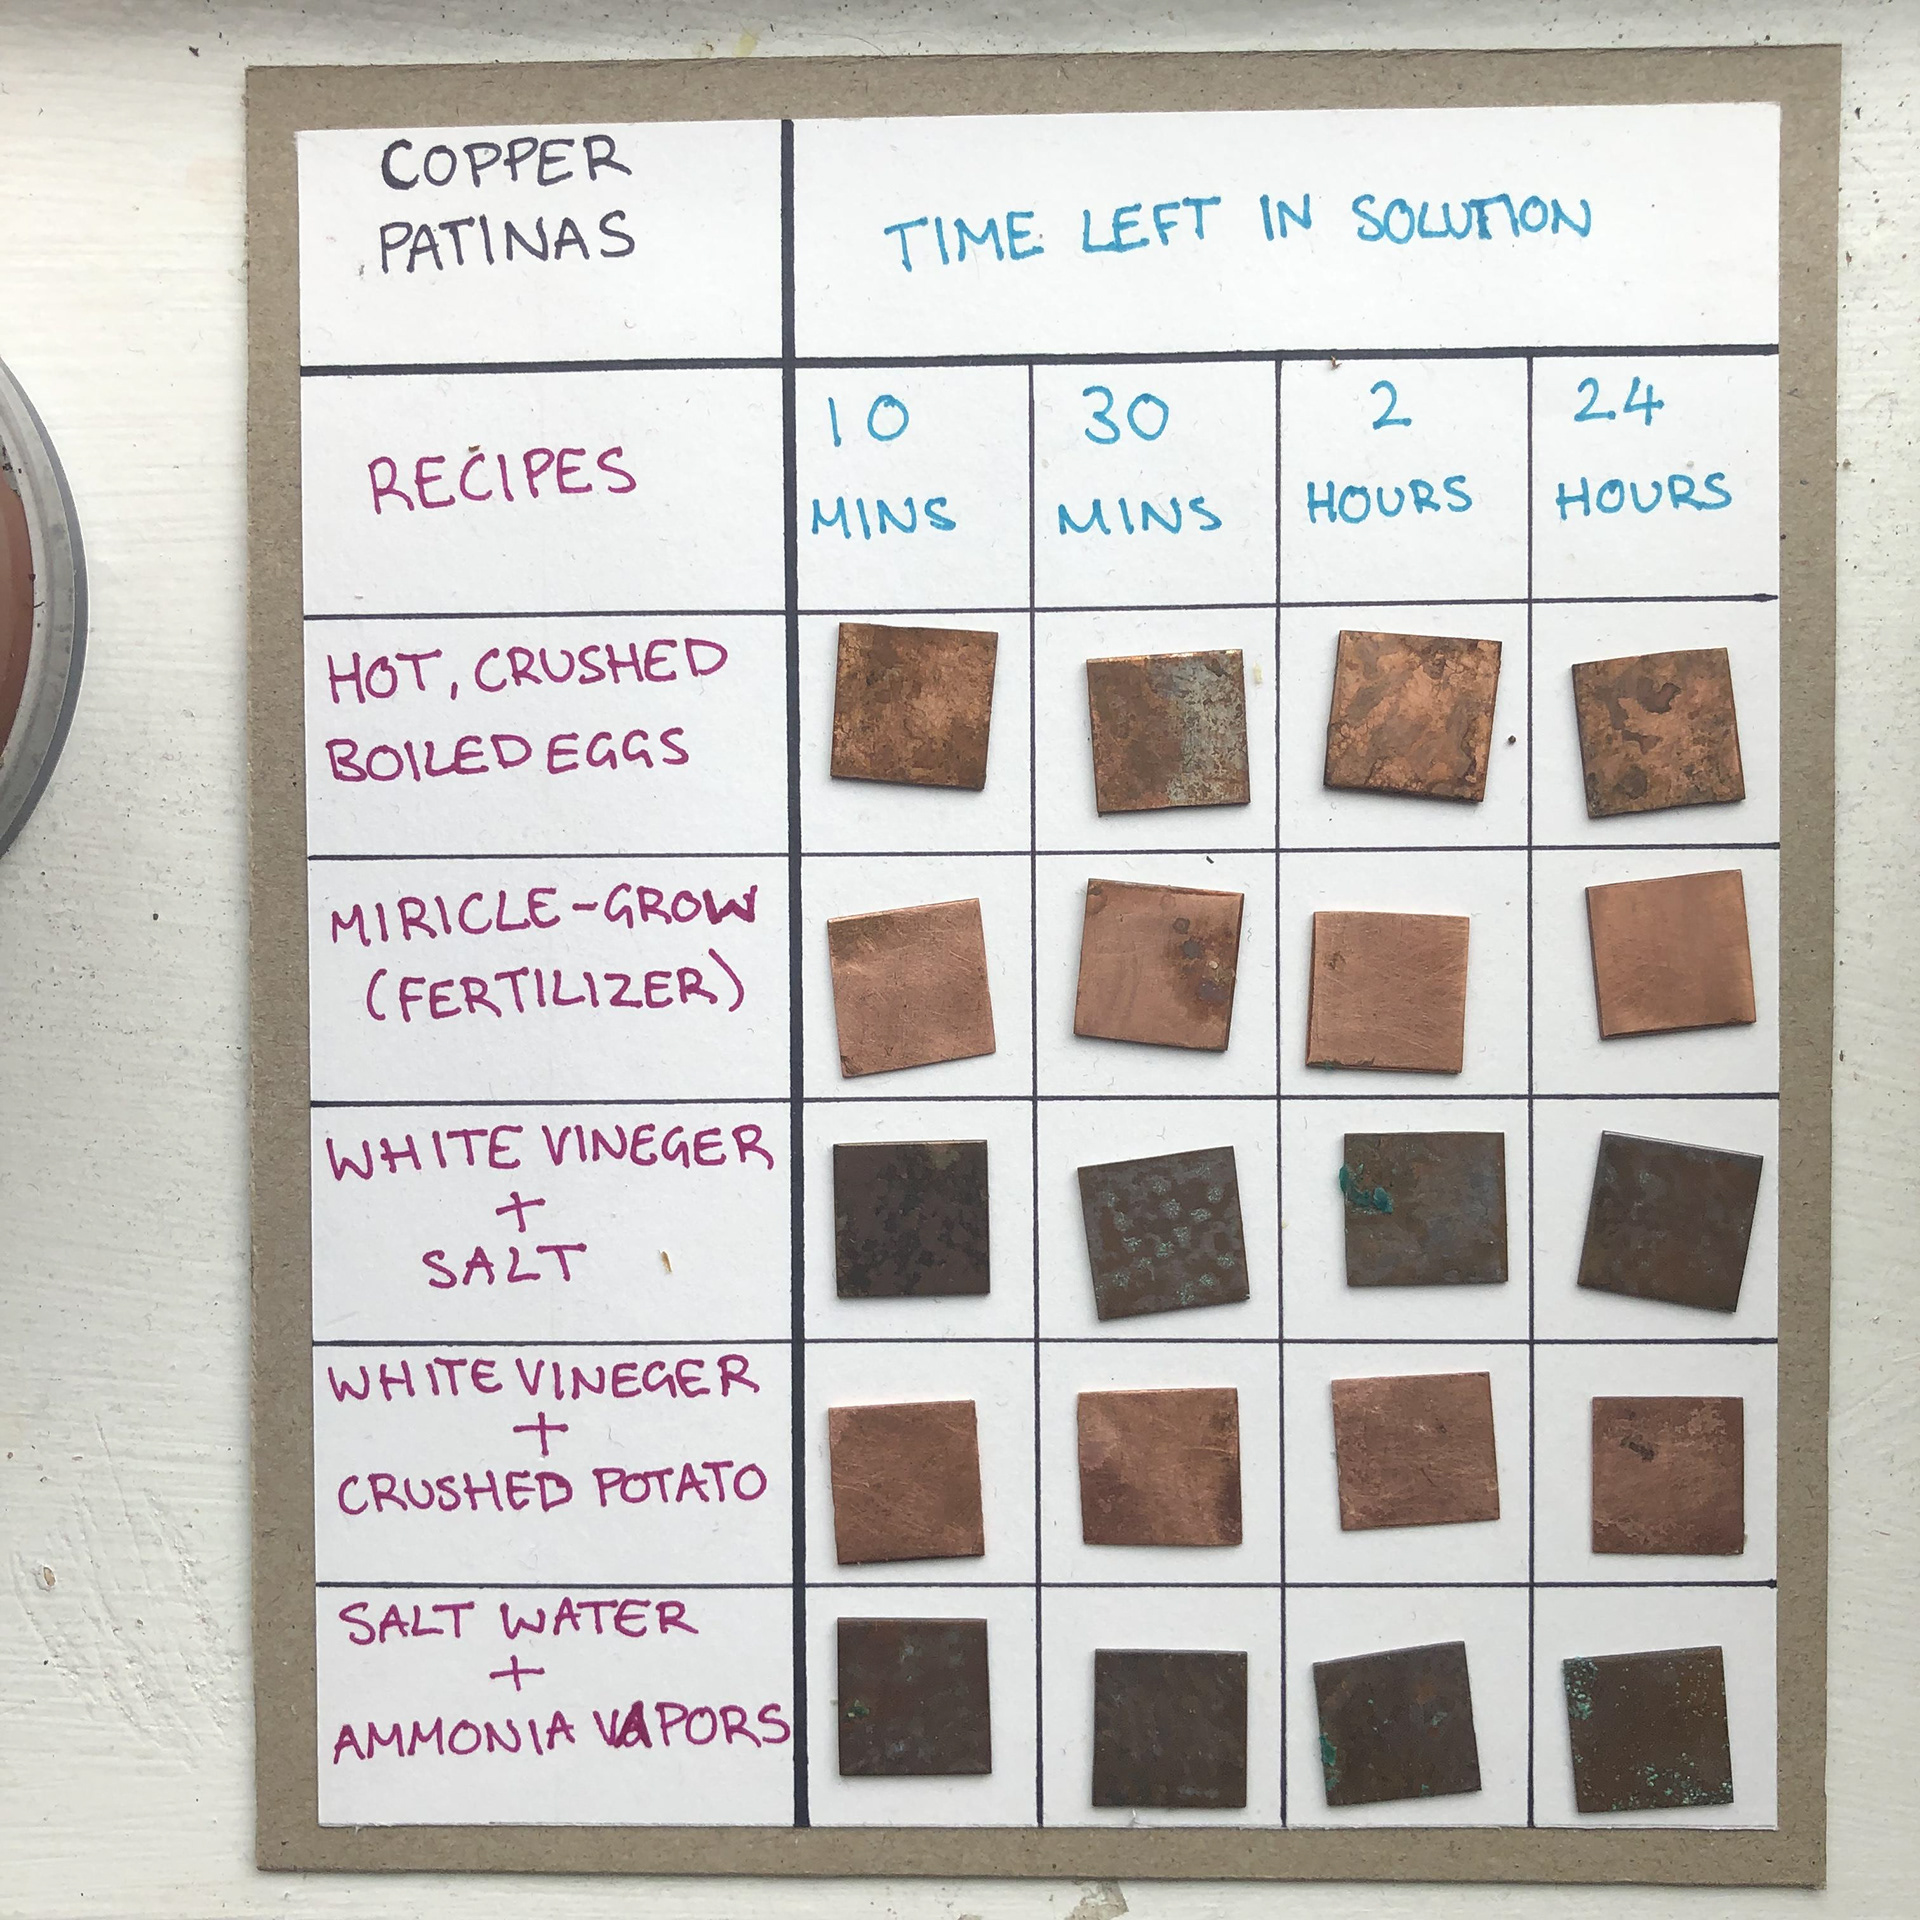 COPPER
PATINAS
TIME LEFT IN SOLUTION
RECIPES
10
MINS
30
MINS
2
HOURS
24
HOURS
HOT, CRUSHED
BOILED EGGS
MIRICLE-GROW
(FERTILIZER)
WHITE VINEGER
+
SALT
WHITE VINEGER
+
CRUSHED POTATO
SALT WATER
+
AMMONIA VAPORS